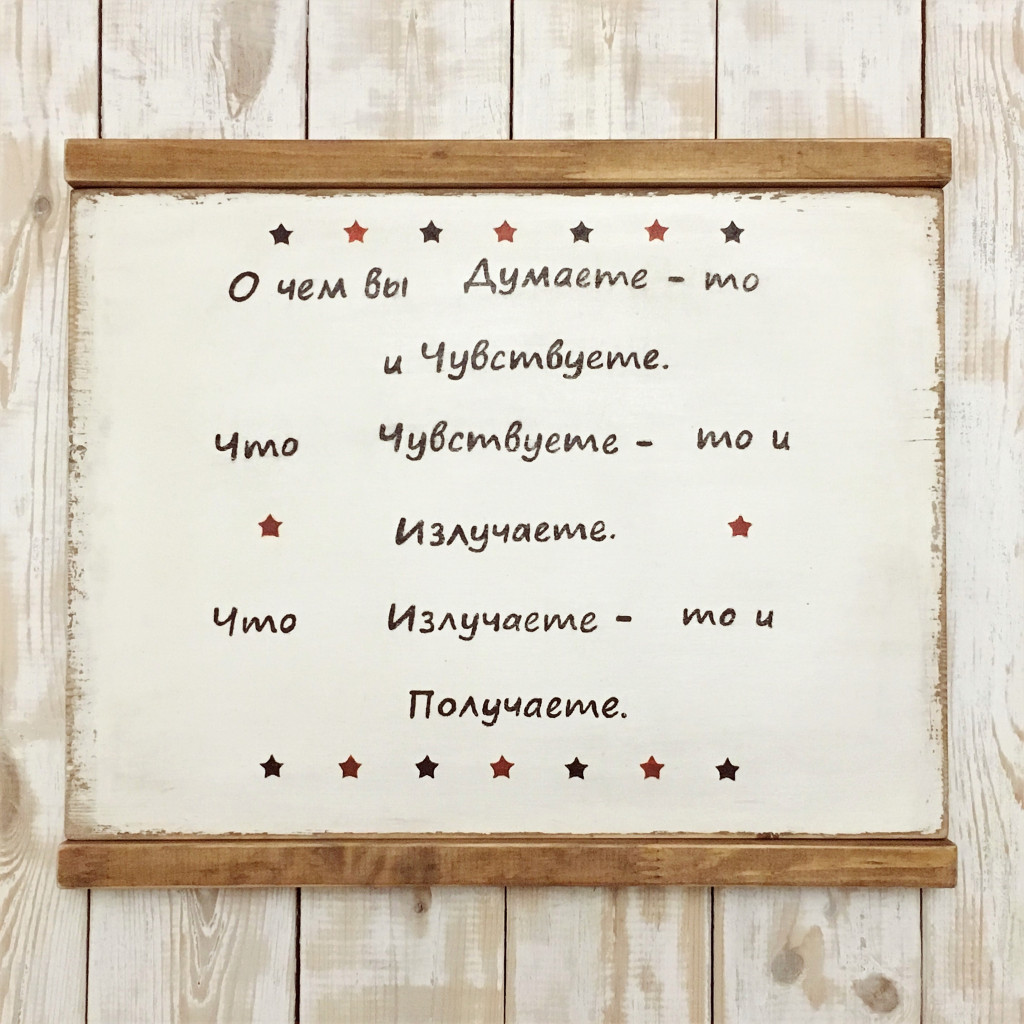 О чем вы Думаете - то
и Чувствуете.
Что Чувствуете - то и
Излучаете.
Что Излучаете - то и
Получаете.